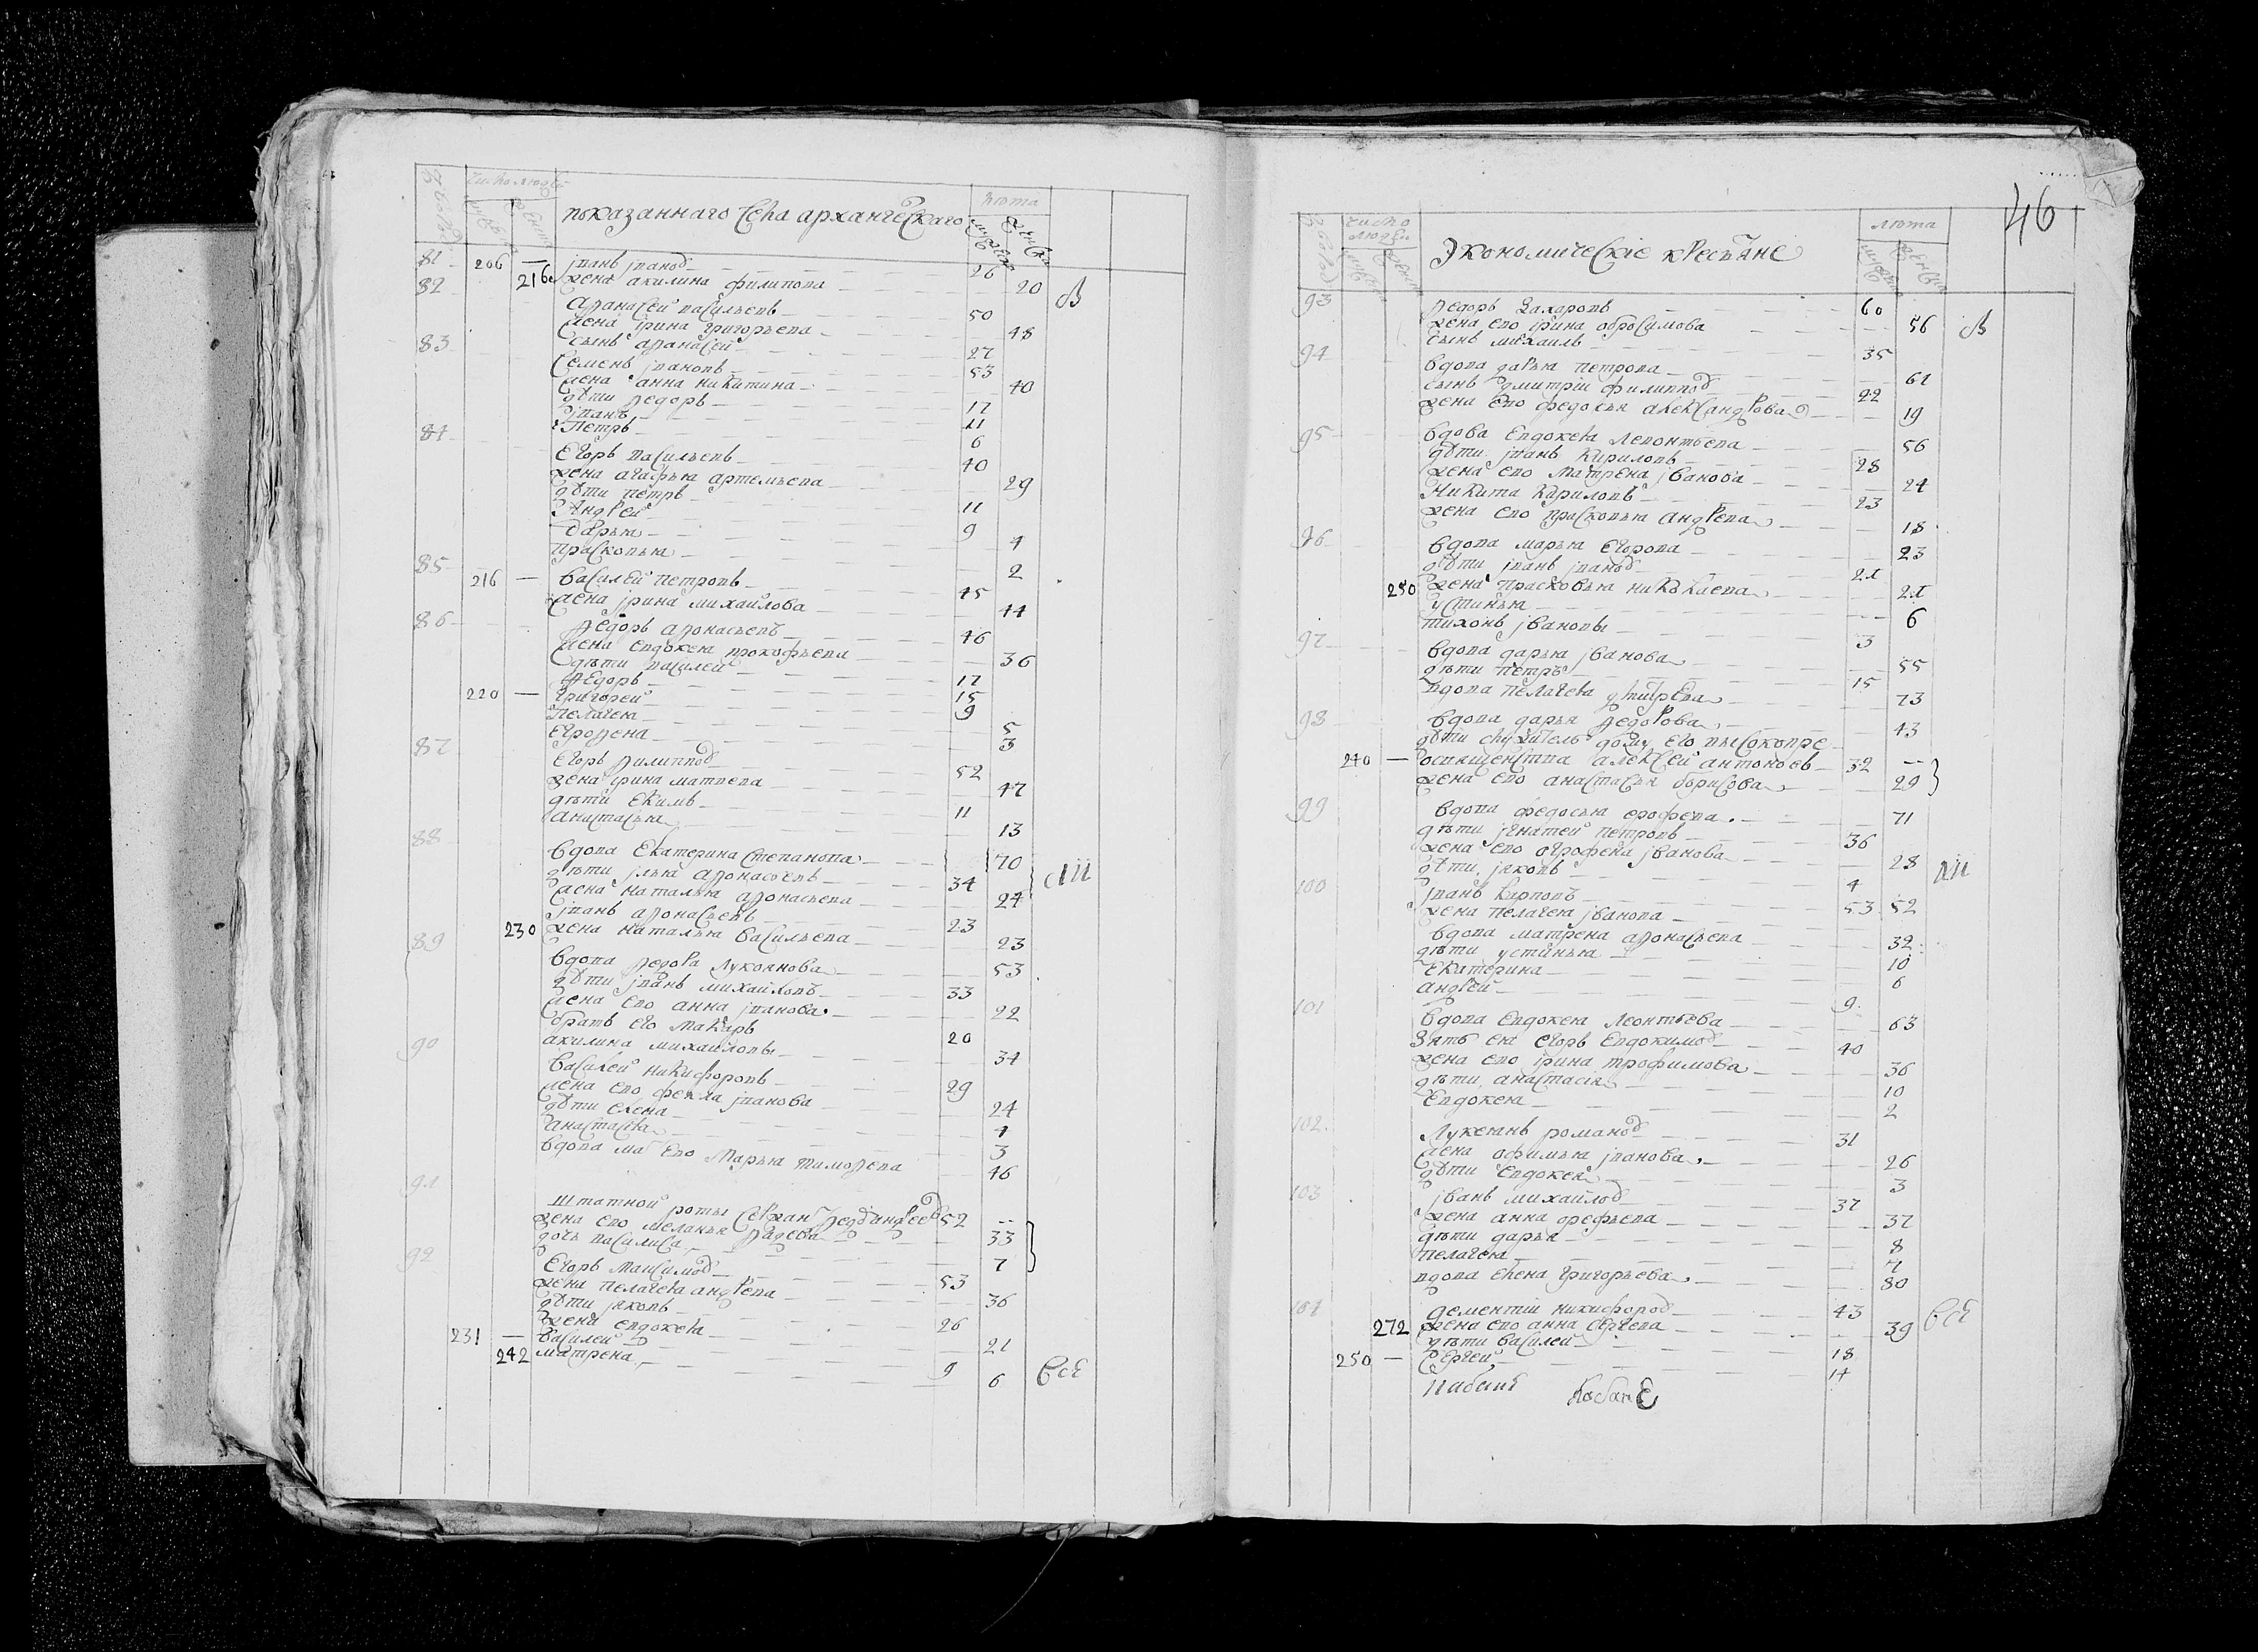 число людей
показаннаго села архангелскаго
лѣта
81 206 — іванъ івановъ 26
216 жена акилина филипова 20
82
афанасей васильевъ 50
жена ірина григорьева 48
сынъ афанасей 27
83
семенъ івановъ 53
жена анна никитина 40
дѣти федоръ 17
іванъ 11
петръ 6
84
егоръ васильевъ 40
жена агафья артемьева 29
дѣти петръ 11
андрей 9
дарья 4
прасковья 2
85
216 — василей петровъ 45
жена ірина михайлова 44
86
федоръ афонасьевъ 46
жена евдокея прокофьева 36
дѣти василей 17
федоръ 15
220 — григорей 9
пелагея 5
3
87
егоръ филиповъ 52
жена ірина матвева 47
дѣти екимъ 11
анастасья 13
88
вдова екатерина степанова 70
дѣти ілья афонасьевъ 34
жена наталья афонасьева 24
іванъ афонасьевъ 23
230 жена наталья васильева 23
89
вдова федора лукоянова 53
дѣти іванъ михайловъ 33
жена ево анна іванова 22
братъ его макаръ 20
акилина михайловы 34
90
василей никифоровъ 29
жена ево фекла іванова 24
дѣти елена 4
анастасья 3
вдова мать ево марья тимофева 46
91
штатной роты сержан федор андреевъ 52
жена ево меланья фадева 33
дочь василиса 7
92
егоръ максимовъ 53
жена пелагея андрева 36
дѣти яковъ 26
жена евдокея 21
231 — василей 9
242 матрена 6 все
46
число людей
экономическіе крестьяне
лѣта
93
федоръ захаровъ 60
жена ево ірина обросимова 56
сынъ михаилъ 35
94
вдова дарья петрова 61
сынъ дмитрій филиповъ 22
жена ево федосья александрова 19
95
вдова евдокея левонтьева 56
дѣти іванъ кириловъ 28
жена ево матрена іванова 24
никита кириловъ 23
жена ево прасковья андрева 18
96
вдова марья егорова 23
дѣти іванъ івановъ 21
250 жена прасковья николаева 21
устинья 6
тихонъ івановы 3
97
вдова дарья іванова 55
дѣти петръ 15
вдова пелагея дмитрева 73
98
вдова дарья федорова 43
дѣти служитель дому его высокопре
240 — освященства алексей антоновъ 32
жена ево анастасья борисова 29
99
вдова федосья ерофева 71
дѣти ігнатей петровъ 36
жена ево огрофена іванова 28
дѣти яковъ 4
100
іванъ карповъ 53
жена пелагея іванова 52
вдова матрена афонасьева 32
дѣти устинья 10
екатерина 6
андрей 9
101
вдова евдокея леонтьева 63
зять ея егоръ евдокимовъ 40
жена ево ірина трофимова 36
дѣти анастасія 10
евдокея 2
102
лукеянъ романовъ 31
жена офимья іванова 26
дѣти евдокея 3
103
іванъ михайловъ 37
жена анна орефьева 37
дѣти дарья 8
пелагея 4
вдова елена григорьева 80
104
дементій никифоровъ 43
272 жена ево анна сергева 39 все
дѣти василей 18
250 — сергей 14